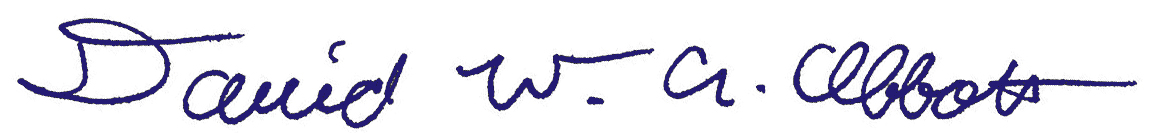 David W. A. Abbott